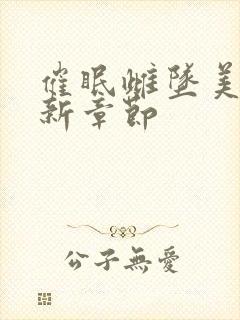 催眠雌墜美
新章節
公子無愛